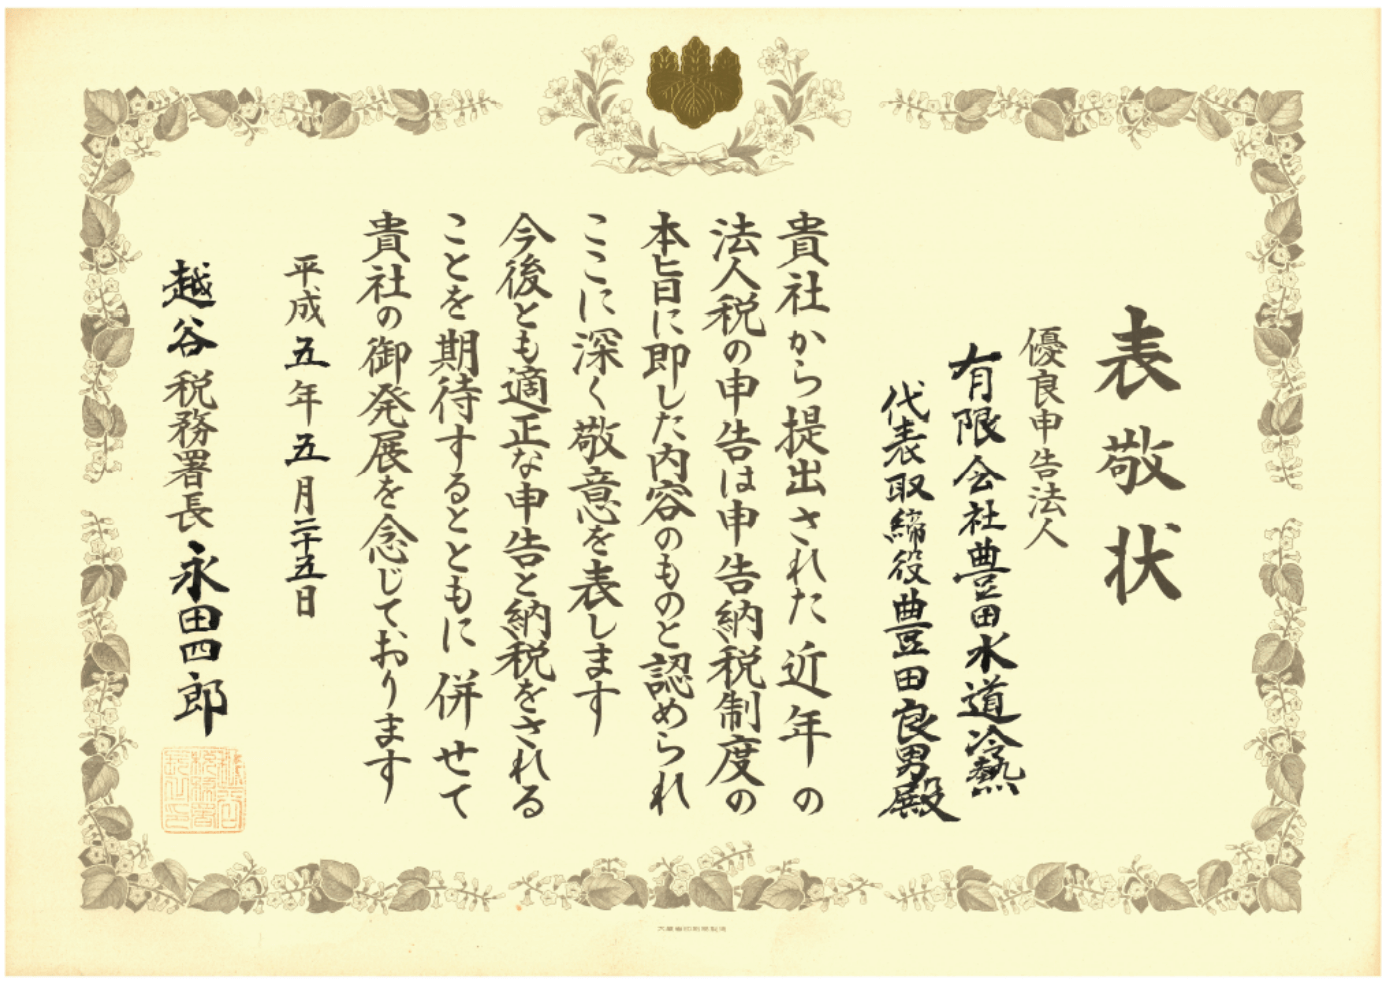 表敬状
優良申告法人
有限会社豊田水道冷熱
代表取締役豊田良男殿
貴社から提出された近年の
法人税の申告は申告納税制度の
本旨に即した内容のものと認められ
ここに深く敬意を表します
今後とも適正な申告と納税をされる
ことを期待するとともに併せて
貴社の御発展を念じております
平成五年五月二十五日
越谷税務署長永田四郎
大蔵省印刷局製造